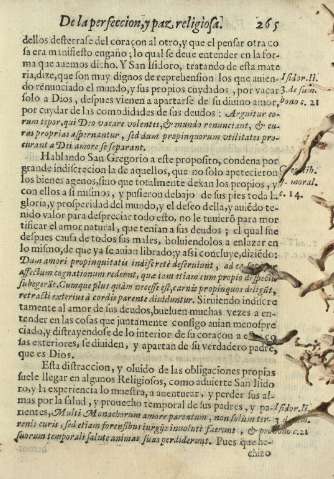 De la perfeccion, y paz religiosa. 265
dellos desterrase del coraçon al otro, y que el pensar otra co
sa era manifiesto engaño; lo qual se deue entender en la for-
ma que auemos dicho. Y San Isidoro, tratando de esta mate
ria, dize, que son muy dignos de reprehension los que auien-
do renunciado el mundo, y sus propios cuydados, por vacar
solo a Dios, despues vienen a apartarse de su diuino amor,
por cuydar de las comodidades de sus deudos: Arguitur eo-
rum tepor, qui Deo vacare volentes, & mundo renunciant, & cu-
ras proprias aspernantur, sed dum propinquorum vtilitates pro-
curant a Dei amore se separant.
Isidor. li.
3. de sum.
bono c. 21
Hablando San Gregorio a este proposito, condena por
grande indiscrecion la de aquellos, que no solo apetecieron
los bienes agenos, sino que totalmente dexan los propios, y
con ellos a si mismos, y pusieron debajo de sus pies toda la
gloria, y prosperidad del mundo, y el deseo della, y auiēdo te-
nido valor para despreciar todo esto, no le tuuierō para mor
tificar el amor natural, que tenian a sus deudos; el qual fue
despues causa de todos sus males, boluiendolos a enlazar en
lo mismo, de que ya se auian librado; y assi concluye, diziēdo:
Dum amori propinquitatis indiscretè deserviunt, ad
affectum cognationum redeunt, quæ iam etiam cum propio despectu
subegerāt. Cumque plus quàm necesse est, carnis propinquos diligūt,
retracti exterius à cordis parente diuiduntur. Siruiendo indiscre
tamente al amor de sus deudos, bueluen muchas vezes a en-
tender en las cosas que juntamente consigo auian menospre
ciado, y distrayendose de lo interior de su coraçon a
sas exteriores, se diuiden, y apartan de su verdadero padre,
que es Dios.
moral.
14.
Esta distraccion, y oluido de las obligaciones propias
suele llegar en algunos Religiosos, como aduierte San Isido
ro, y la experiencia lo muestra, a auenturar, y perder sus al-
mas por la salud, y prouecho temporal de sus padres, y pa-
rientes, Multi Monachorum amore parentum, non solùm ter-
renis curis, sed etiam forensibus iurgijs inuoluti fuerunt, & pro
suorum temporali salute animas suas perdiderunt. Pues que he-
Isidor. li.
bono c. 21
chizo